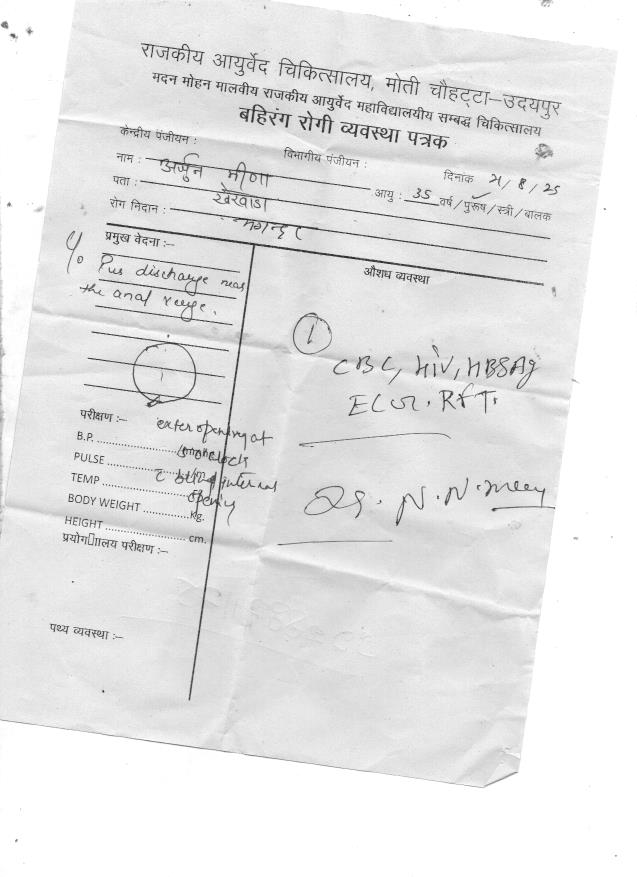 राजकीय आयुर्वेद चिकित्सालय, मोती चौहट्टा–उदयपुर
मदन मोहन मालवीय राजकीय आयुर्वेद महाविद्यालयीय सम्बद्ध चिकित्सालय
बहिरंग रोगी व्यवस्था पत्रक
केन्द्रीय पंजीयन : विभागीय पंजीयन : दिनांक 21/8/25
नाम : अर्जुन मीणा आयु : 35 वर्ष/पुरूष/स्त्री/बालक
पता : खेरवाडा
रोग निदान : भगन्दर
प्रमुख वेदना :–
औशध व्यवस्था
C/o Pus discharge near
the anal verge.
1
CBC, HIV, HBSAg
RFT.
परीक्षण :–
exter opening at
B.P.
o'clock
PULSE
internal
TEMP
opening
BODY WEIGHT Kg.
HEIGHT cm.
Dr. N. N.
प्रयोगाालय परीक्षण :–
पथ्य व्यवस्था :–